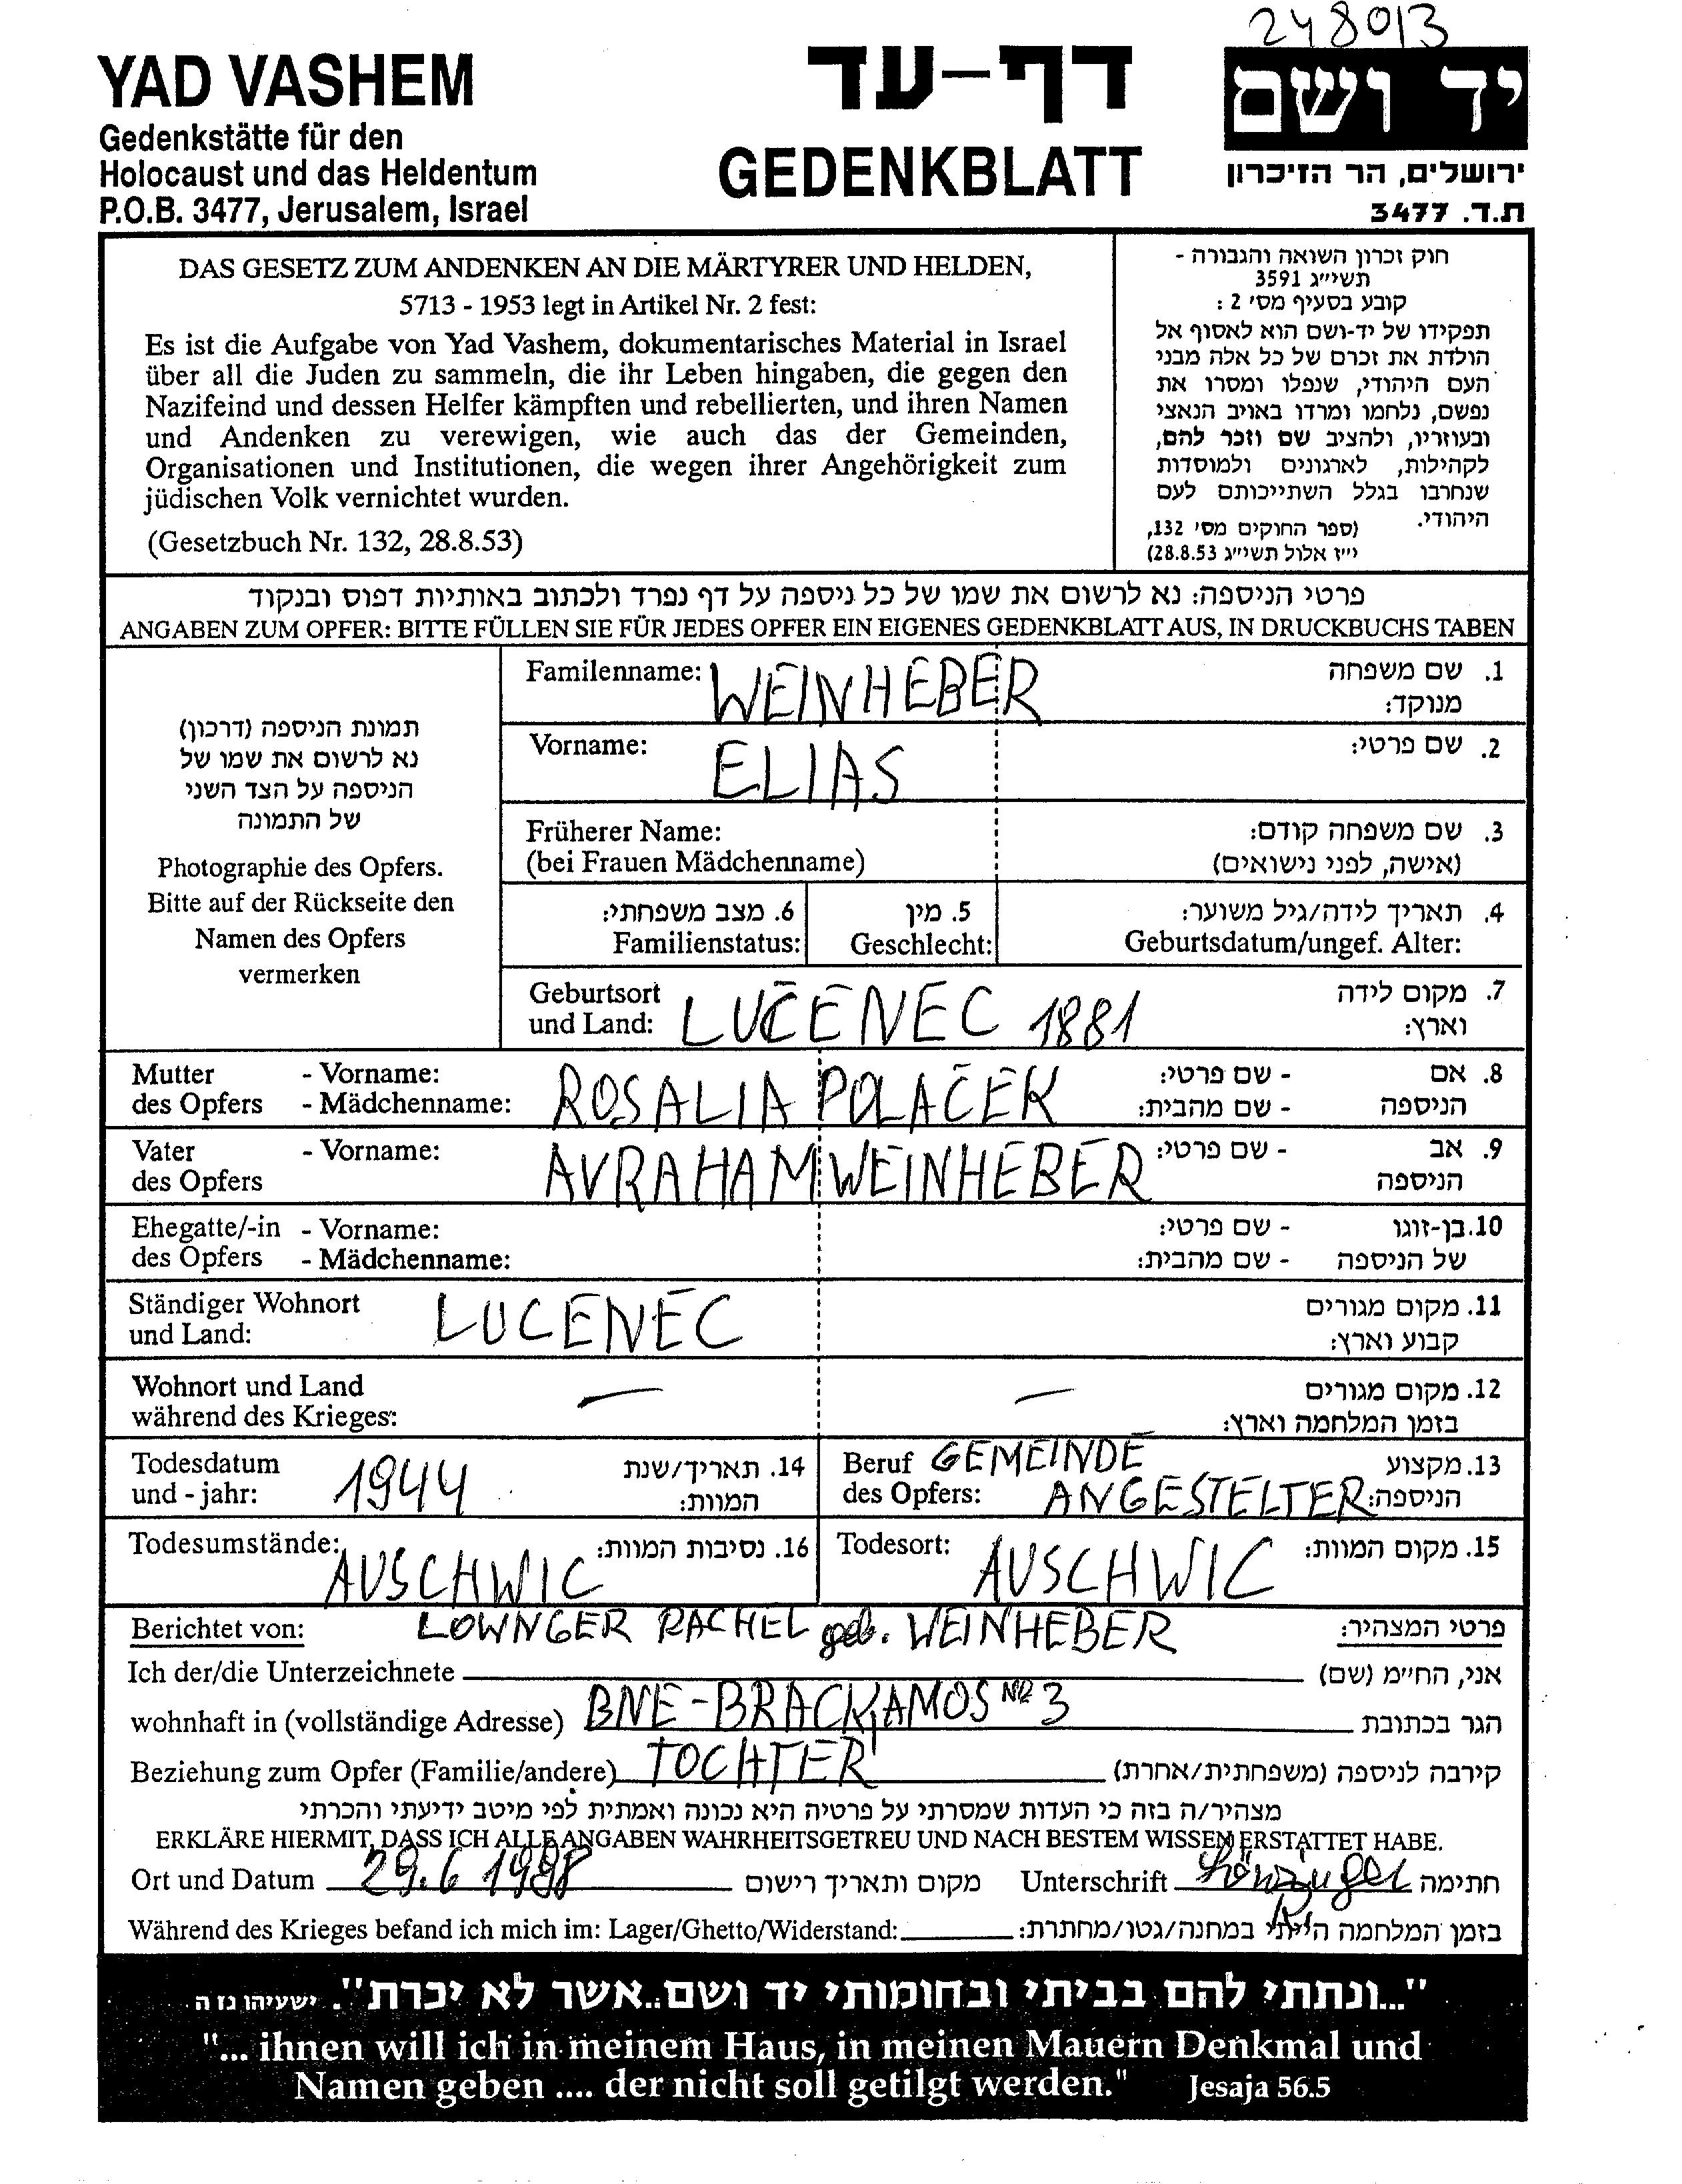 248013
YAD VASHEM
Gedenkstätte für den
Holocaust und das Heldentum
P.O.B. 3477, Jerusalem, Israel
דף-עד
GEDENKBLATT
יד ושם
ירושלים, הר הזיכרון
ת.ד. 3477
DAS GESETZ ZUM ANDENKEN AN DIE MÄRTYRER UND HELDEN,
5713 - 1953 legt in Artikel Nr. 2 fest:
Es ist die Aufgabe von Yad Vashem, dokumentarisches Material in Israel
über all die Juden zu sammeln, die ihr Leben hingaben, die gegen den
Nazifeind und dessen Helfer kämpften und rebellierten, und ihren Namen
und Andenken zu verewigen, wie auch das der Gemeinden,
Organisationen und Institutionen, die wegen ihrer Angehörigkeit zum
jüdischen Volk vernichtet wurden.
(Gesetzbuch Nr. 132, 28.8.53)
חוק זכרון השואה והגבורה -
תשי״ג 3591
קובע בסעיף מס׳ 2 :
תפקידו של יד-ושם הוא לאסוף אל
הולדת את זכרם של כל אלה מבני
העם היהודי, שנפלו ומסרו את
נפשם, נלחמו ומרדו באויב הנאצי
ובעוזריו, ולהציב שם וזכר להם,
לקהילות, לארגונים ולמוסדות
שנחרבו בגלל השתייכותם לעם
היהודי.
(ספר החוקים מס׳ 132,
י״ז אלול תשי״ג 28.8.53)
פרטי הניספה: נא לרשום את שמו של כל ניספה על דף נפרד ולכתוב באותיות דפוס ובנקוד
ANGABEN ZUM OPFER: BITTE FÜLLEN SIE FÜR JEDES OPFER EIN EIGENES GEDENKBLATT AUS, IN DRUCKBUCHS TABEN
תמונת הניספה (דרכון)
נא לרשום את שמו של
הניספה על הצד השני
של התמונה
Photographie des Opfers.
Bitte auf der Rückseite den
Namen des Opfers
vermerken
Familenname: WEINHEBER 1. שם משפחה
מנוקד:
Vorname: ELIAS 2. שם פרטי:
Früherer Name: 3. שם משפחה קודם:
(bei Frauen Mädchenname) (אישה, לפני נישואים)
6. מצב משפחתי: 5. מין 4. תאריך לידה/גיל משוער:
Familienstatus: Geschlecht: Geburtsdatum/ungef. Alter:
Geburtsort 7. מקום לידה
und Land: LUČENEC 1881 וארץ:
Mutter - Vorname: - שם פרטי: 8. אם
des Opfers - Mädchenname: ROSALIA POLAČEK - שם מהבית: הניספה
Vater - Vorname: AVRAHAM WEINHEBER - שם פרטי: 9. אב
des Opfers הניספה
Ehegatte/-in - Vorname: - שם פרטי: 10. בן-זוגו
des Opfers - Mädchenname: - שם מהבית: של הניספה
Ständiger Wohnort LUCENEC 11. מקום מגורים
und Land: קבוע וארץ:
Wohnort und Land — — 12. מקום מגורים
während des Krieges: בזמן המלחמה וארץ:
Todesdatum 1944 14. תאריך/שנת Beruf GEMEINDE 13. מקצוע
und - jahr: המוות: des Opfers: ANGESTELTER הניספה:
Todesumstände: AUSCHWIC 16. נסיבות המוות: Todesort: AUSCHWIC 15. מקום המוות:
Berichtet von: LOWNGER RACHEL geb. WEINHEBER פרטי המצהיר:
Ich der/die Unterzeichnete אני, הח״מ (שם)
wohnhaft in (vollständige Adresse) BNE-BRACK, AMOS No 3 הגר בכתובת
Beziehung zum Opfer (Familie/andere) TOCHTER קירבה לניספה (משפחתית/אחרת)
מצהיר/ה בזה כי העדות שמסרתי על פרטיה היא נכונה ואמתית לפי מיטב ידיעתי והכרתי
ERKLÄRE HIERMIT, DASS ICH ALLE ANGABEN WAHRHEITSGETREU UND NACH BESTEM WISSEN ERSTATTET HABE.
Ort und Datum 29.6 1998 מקום ותאריך רישום Unterschrift חתימה
Während des Krieges befand ich mich im: Lager/Ghetto/Widerstand: בזמן המלחמה הייתי במחנה/גטו/מחתרת:
"...ונתתי להם בביתי ובחומותי יד ושם..אשר לא יכרת". ישעיהו נז ה
"... ihnen will ich in meinem Haus, in meinen Mauern Denkmal und
Namen geben .... der nicht soll getilgt werden." Jesaja 56.5